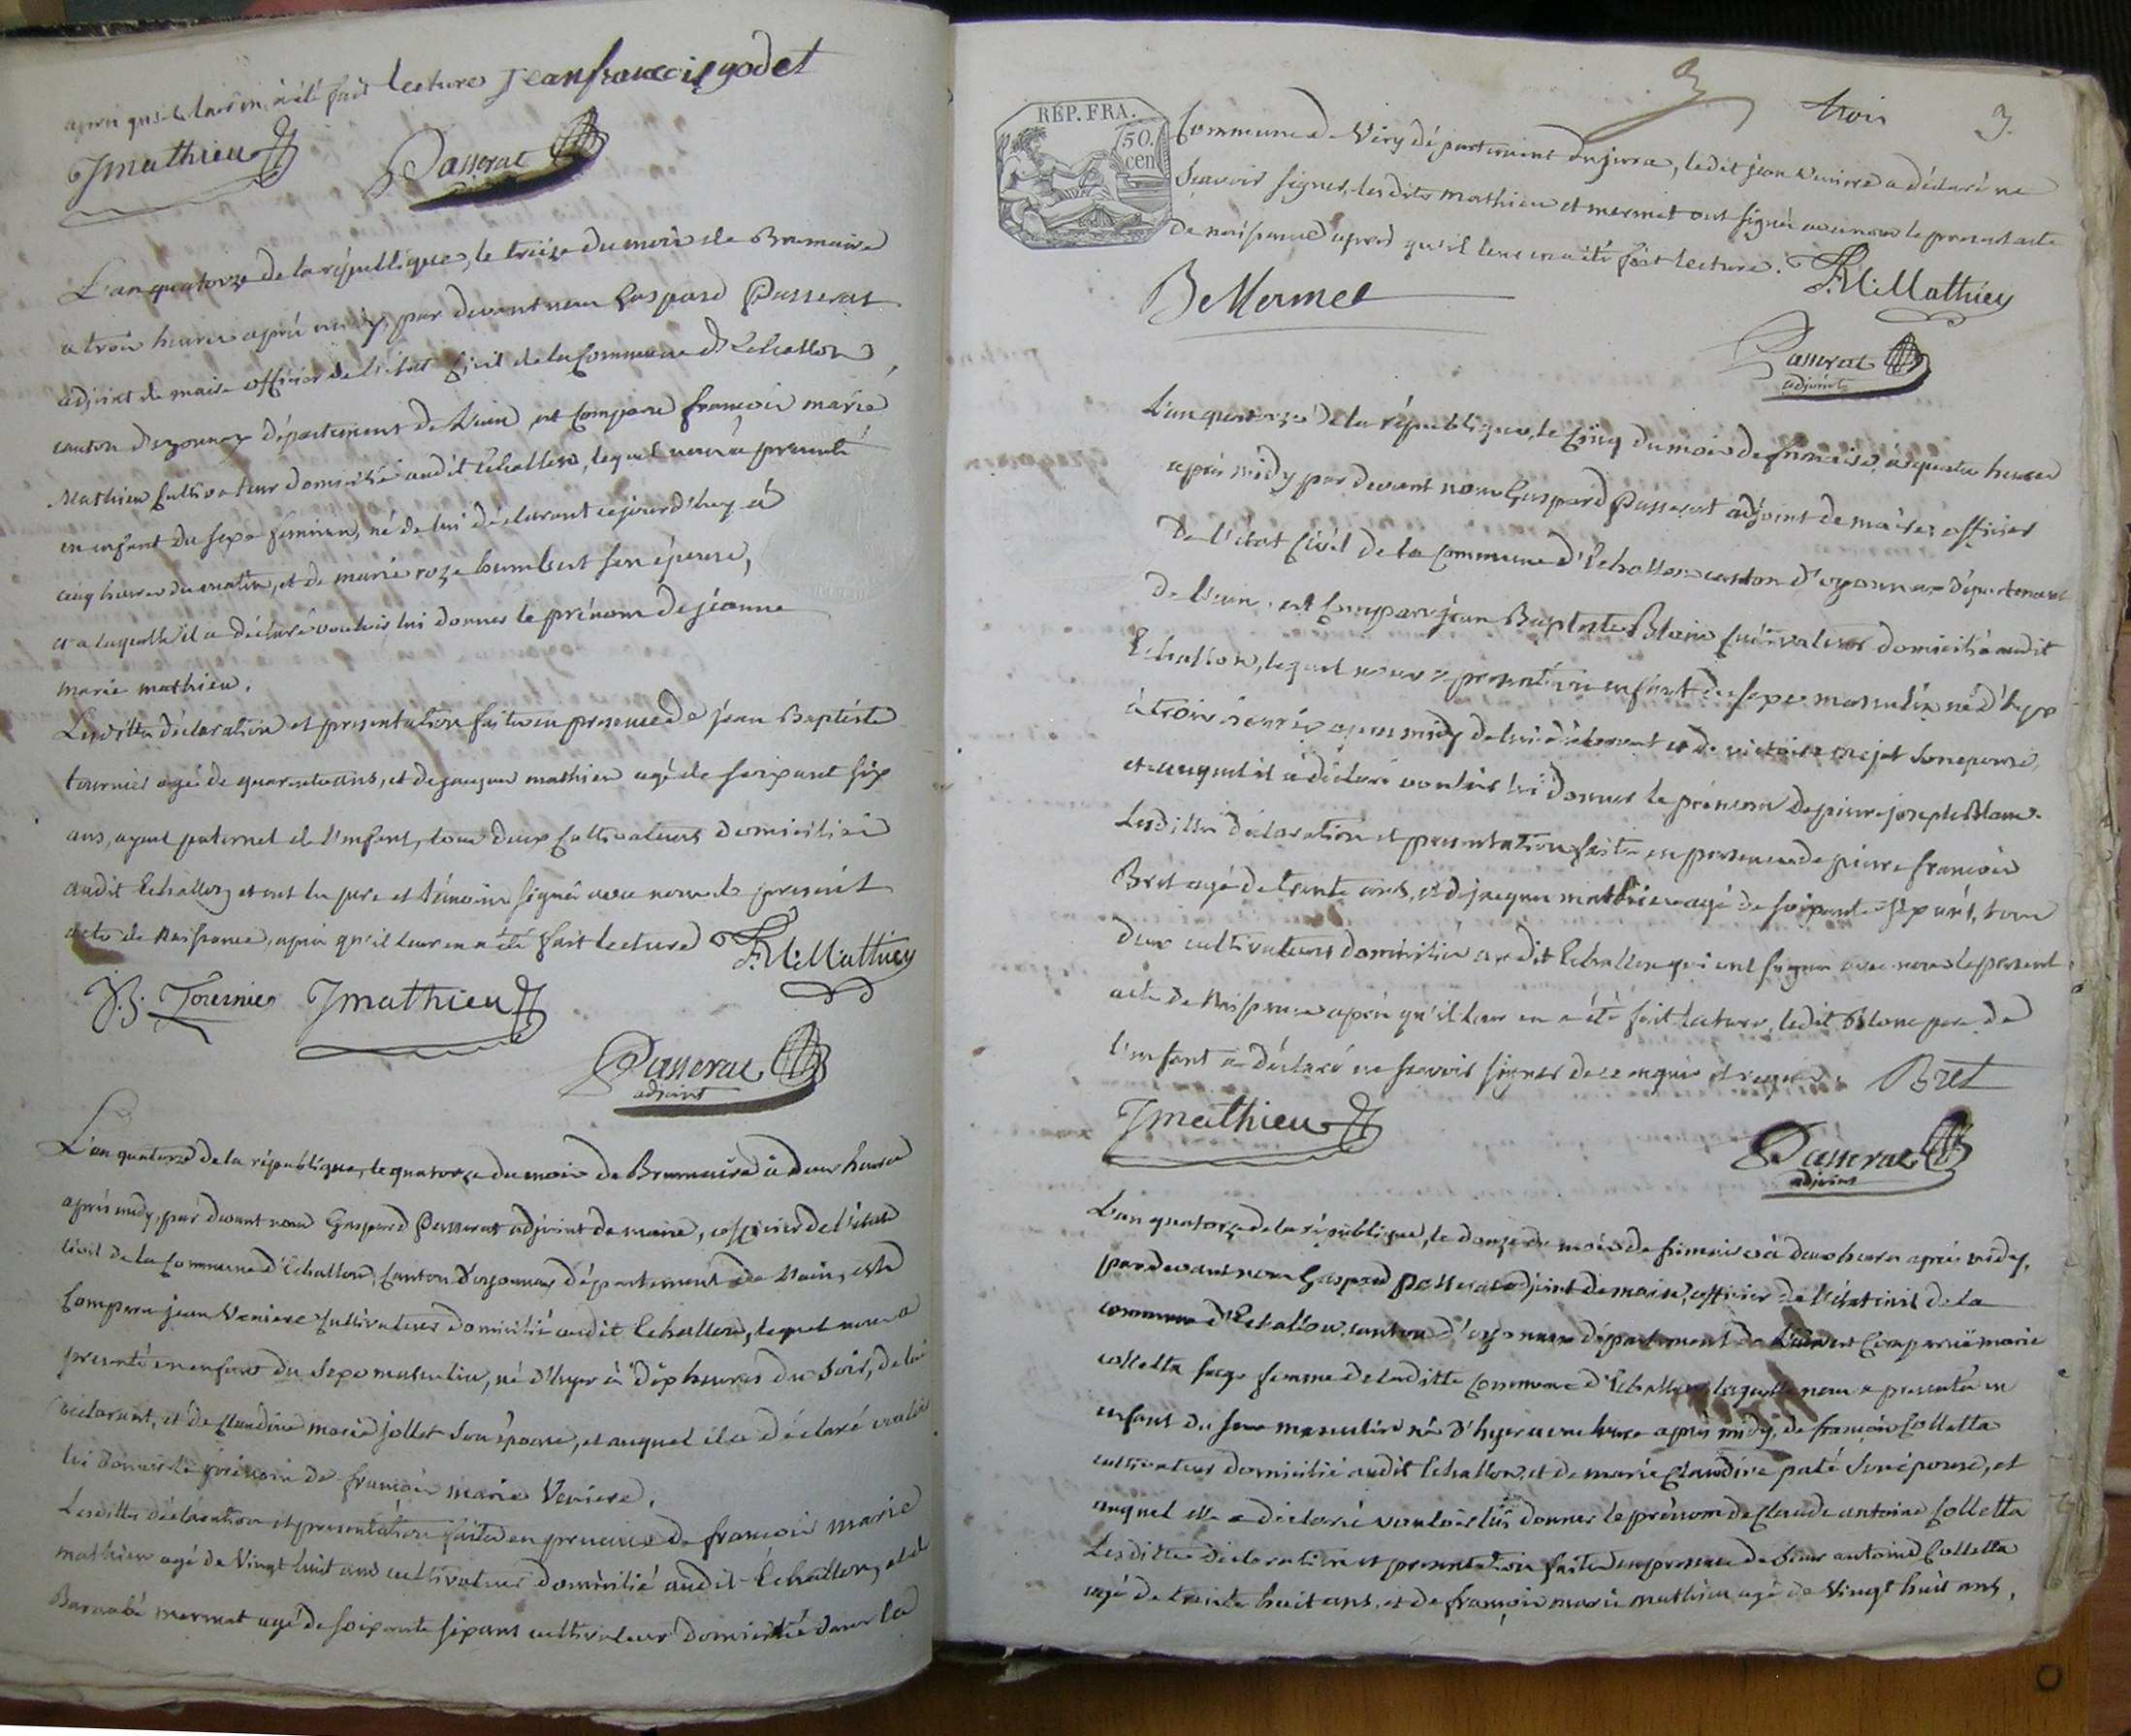 après qu'il leur en a été fait lecture Jean françois godet
Jmathieu Passerat
L'an quatorze de la république, le treize du mois de Brumaire
a trois heures après midy, par devant nous Gaspard Passerat
adjoint de maire officier de l'état Civil de la Commune d'Echallon
canton d'oyonnaz département de l'ain est Comparu françois marie
Mathieu Cultivateur domicilié audit Echallon, lequel nous a presenté
un enfant du sexe feminin, né de lui déclarant cejourd'huy à
cinq heures du matin, et de marie roze humbert son épouse,
et a laquelle il a déclaré vouloir lui donner le prénom de jeanne
marie mathieu.
Lesdittes déclaration et presentation faites en presence de jean Baptiste
tournier agé de quarante ans, et de jacques mathieu agé de soixante six
ans, ayeul paternel de l'enfant, tous deux Cultivateurs domiciliés
audit Echallon et ont les pere et témoins signé avec nous le present
acte de naissance, après qu'il leur en a été fait lecture F.M. Mathieu
J.B. Tournier Jmathieu
Passerat
adjoint
L'an quatorze de la république, le quatorze du mois de Brumaire à deux heures
après midy, par devant nous Gaspard Passerat adjoint de maire, officier de l'état
civil de la Commune d'Echallon, Canton d'oyonnaz département de l'ain, est
Comparu jean Veniere Cultivateur domicilié audit Echallon, lequel nous a
presenté un enfant du sexe masculin, né d'hyer à dix heures du soir, de lui
déclarant, et de Claudine marie jollet son épouse, et auquel il a déclaré vouloir
lui donner le prénom de françois marie Veniere.
Lesdittes déclaration et presentation faites en presence de françois marie
mathieu agé de Vingt huit ans cultivateur domicilié audit Echallon, et de
Barnabé mermet agé de soixante six ans cultivateur domicilié dans la
3 trois 3.
RÉP. FRA.
50. cen
Commune de Viry département du jura, ledit jean Veniere a déclaré ne
sçavoir signer, lesdits mathieu et mermet ont signé avec nous le present acte
de naissance après qu'il leur en a été fait lecture. F.M. Mathieu
B Mermet
Passerat
adjoint
L'an quatorze de la république, le Cinq du mois de frimaire, à quatre heures
après midy par devant nous Gaspard Passerat adjoint de maire, officier
de l'état Civil de la Commune d'Echallon canton d'oyonnaz département
de l'ain, est Comparu jean Baptiste Blanc Cultivateur domicilié audit
Echallon, lequel nous a presenté un enfant du sexe masculin né d'hyer
à trois heures après midy de lui déclarant et de victoire son épouse,
et auquel il a déclaré vouloir lui donner le prénom de pierre joseph Blanc.
Lesdittes déclaration et presentation faites en presence de pierre françois
Bret agé de trente ans, et de jacques mathieu agé de soixante six ans, tous
deux cultivateurs domiciliés audit Echallon qui ont signé avec nous le present
acte de naissance après qu'il leur en a été fait lecture, ledit Blanc pere de
l'enfant a déclaré ne sçavoir signer de ce enquis et requis. Bret
Jmathieu
Passerat
adjoint
L'an quatorze de la république, le douze du mois de frimaire à deux heures après midy,
par devant nous Gaspard Passerat adjoint de maire, officier de l'état civil de la
commune d'Echallon, canton d'oyonnaz département de l'ain est Comparuë marie
colletta sage femme de laditte Commune d'Echallon, laquelle nous a presenté un
enfant du sexe masculin né d'hyer a une heure après midy, de françois Colletta
cultivateur domicilié audit Echallon, et de marie Claudine paté son épouse, et
auquel elle a déclaré vouloir lui donner le prénom de Claude antoine Colletta
Lesdittes déclaration et presentation faites en presence de antoine Colletta
agé de trente huit ans, et de françois marie mathieu agé de Vingt huit ans,